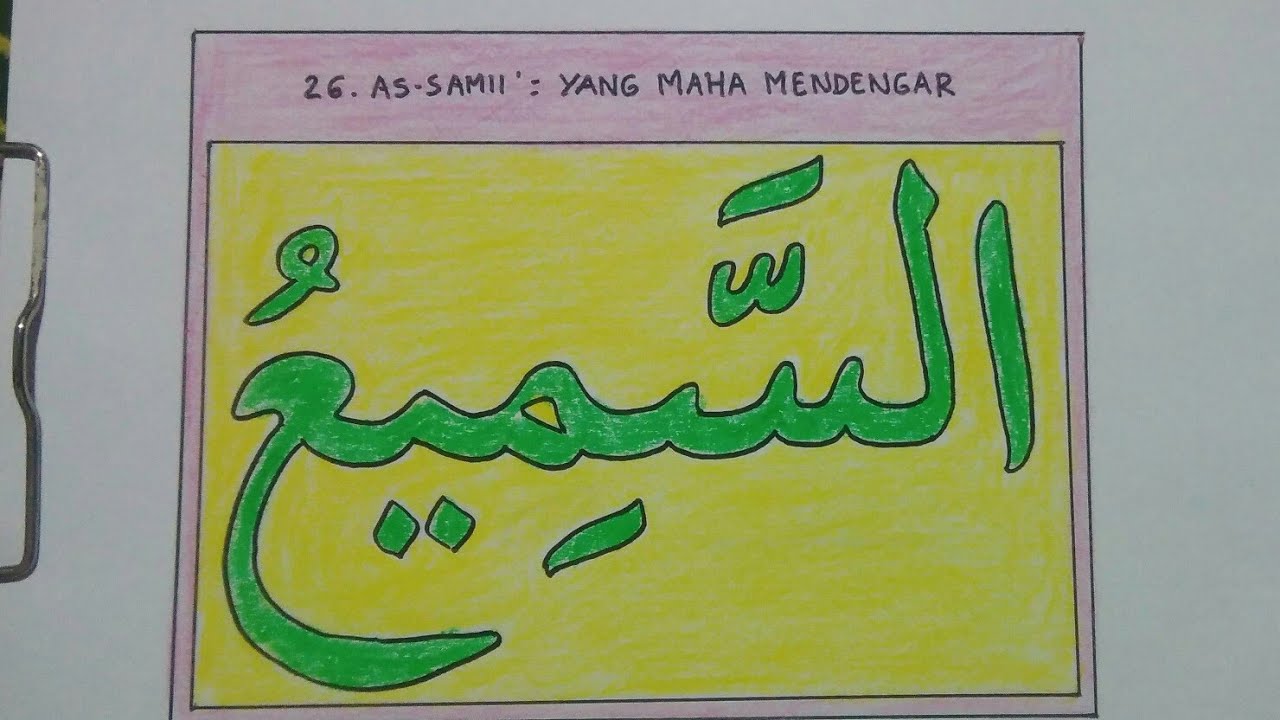 26. AS-SAMII': YANG MAHA MENDENGAR
السَّمِيعُ